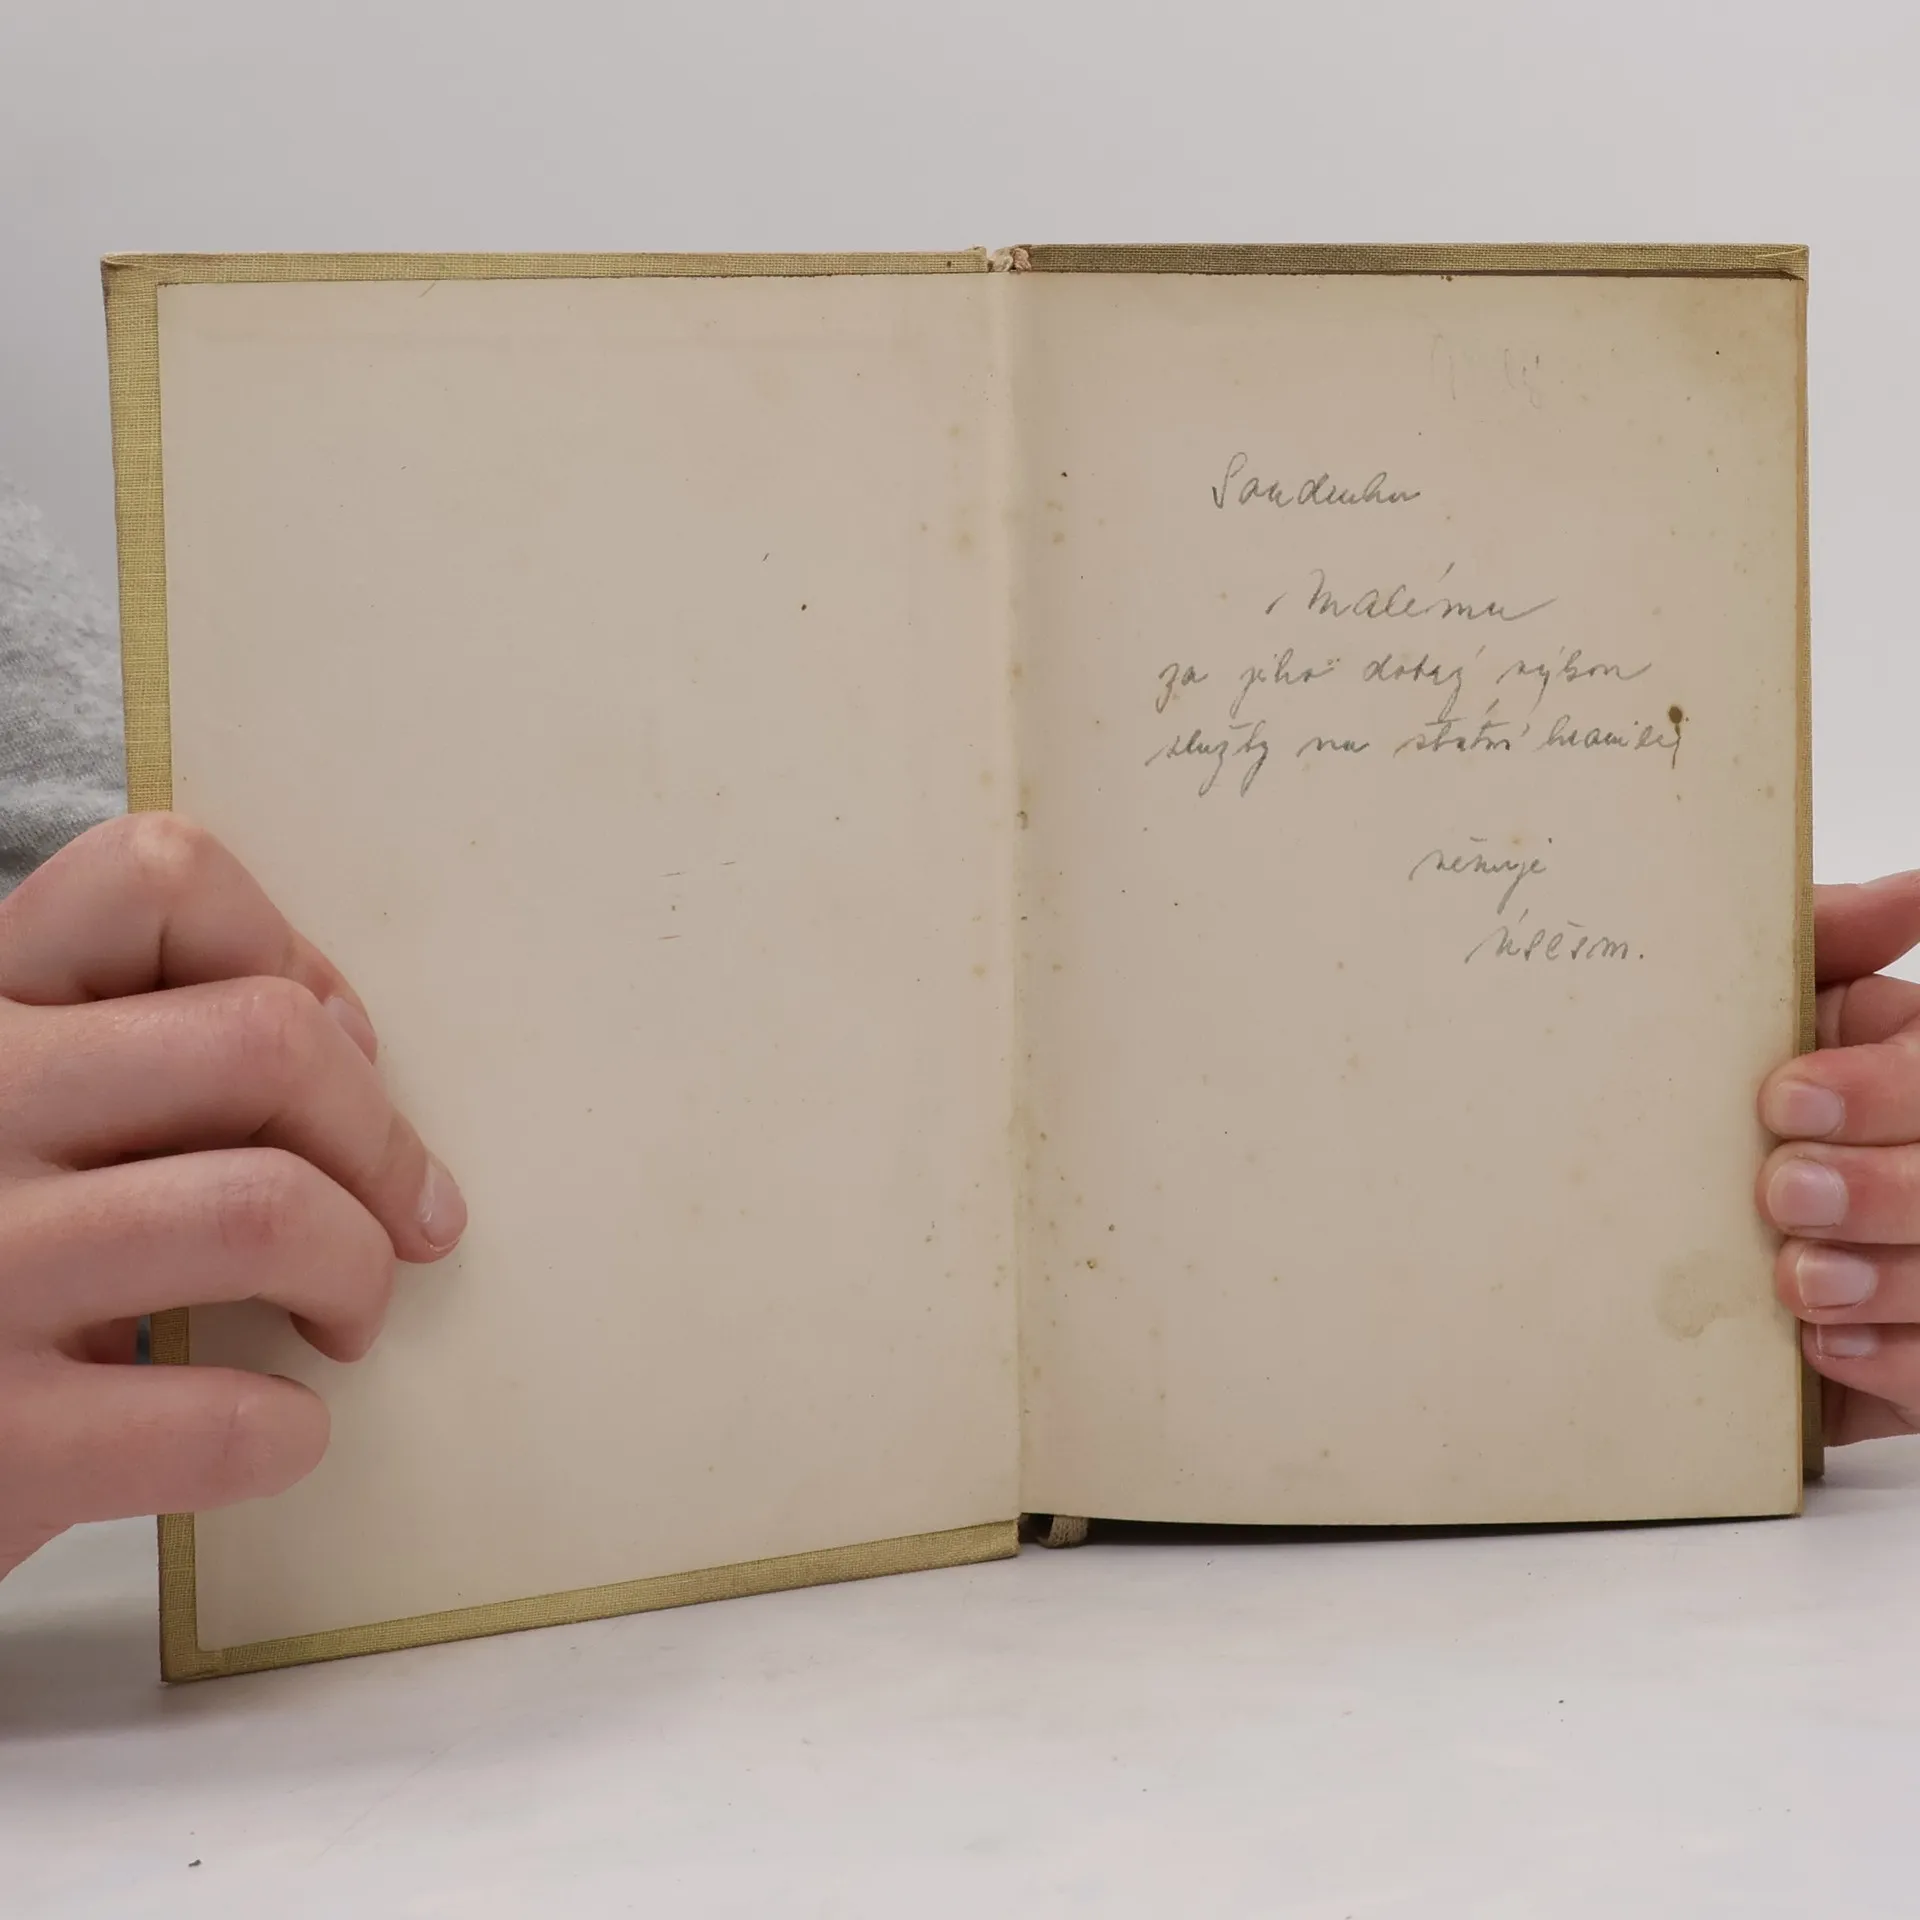 Soudruhu
Malému
za jeho dobrý výkon
služby na státní hranici
věnuje
ÚSČSM.